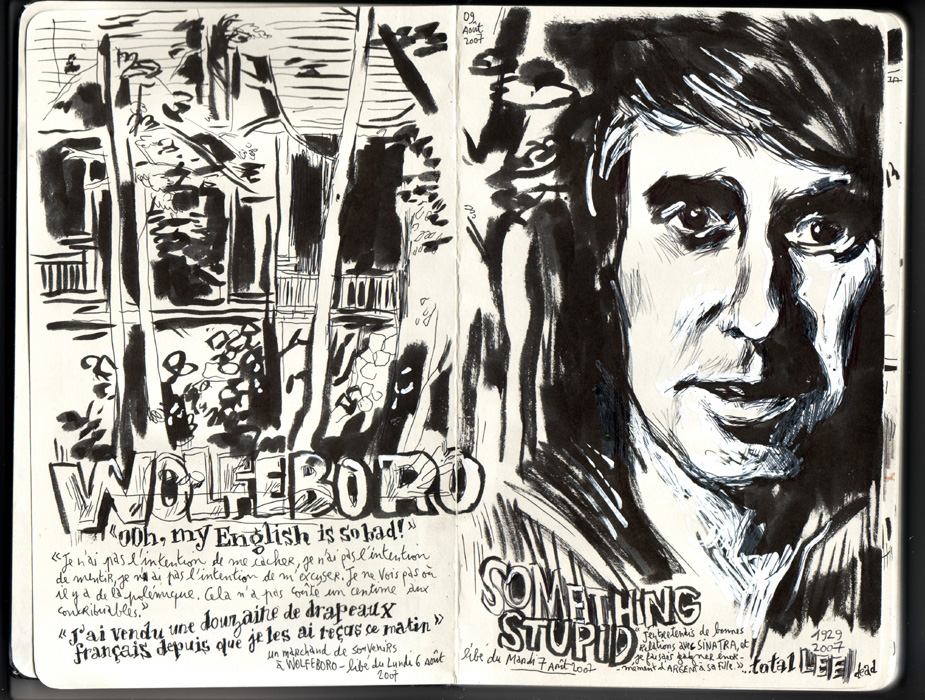 WOLFEBORO
"Ooh, my English is so bad!"
«Je n'ai pas l'intention de me cacher, je n'ai pas l'intention
de mentir, je n'ai pas l'intention de m'excuser. Je ne vois pas où
il y a de la polémique. Cela n'a pas coûté un centime aux
contribuables.»
«J'ai vendu une douzaine de drapeaux
français depuis que je les ai reçus ce matin»
un marchand de souvenirs
à WOLFEBORO - libé du Lundi 6 août
2007
09
Août
2007
SOMETHING
STUPID
«J'entretenais de bonnes
relations avec SINATRA, et
je faisais gagner énor-
-mément d'ARGENT à sa fille.»
libé du Mardi 7 Août 2007
1929
2007
...total LEE dead